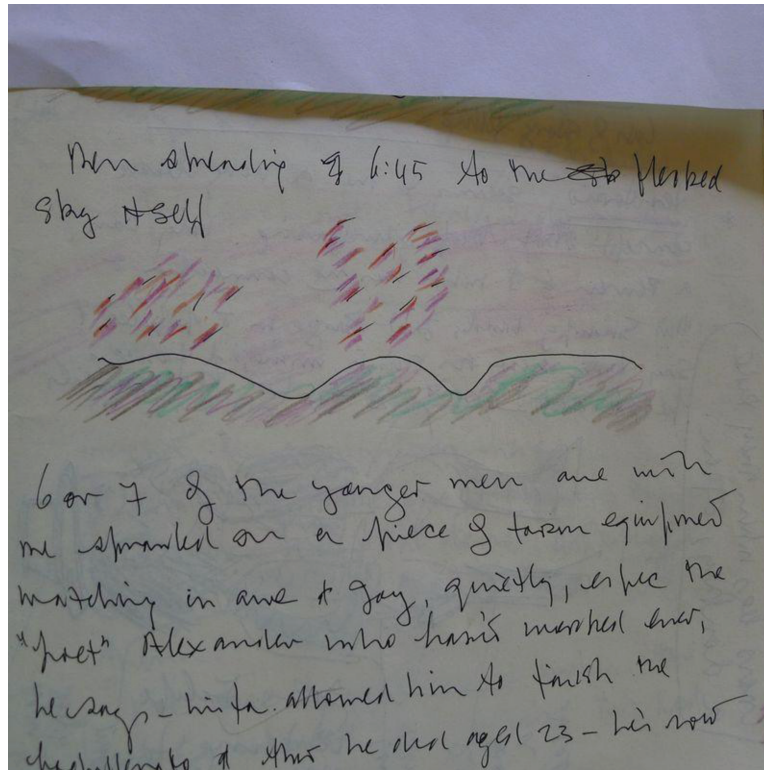 Then spreading @ 6:45 to the flecked
sky itself
6 or 7 of the younger men are with
me sprawled on a piece of farm equipmed
watching in awe & joy, quietly, espec the
"poet" Alexander who hasn't worked ever,
he says – his fa. allowed him to finish the
this he did aged 23 – he's now